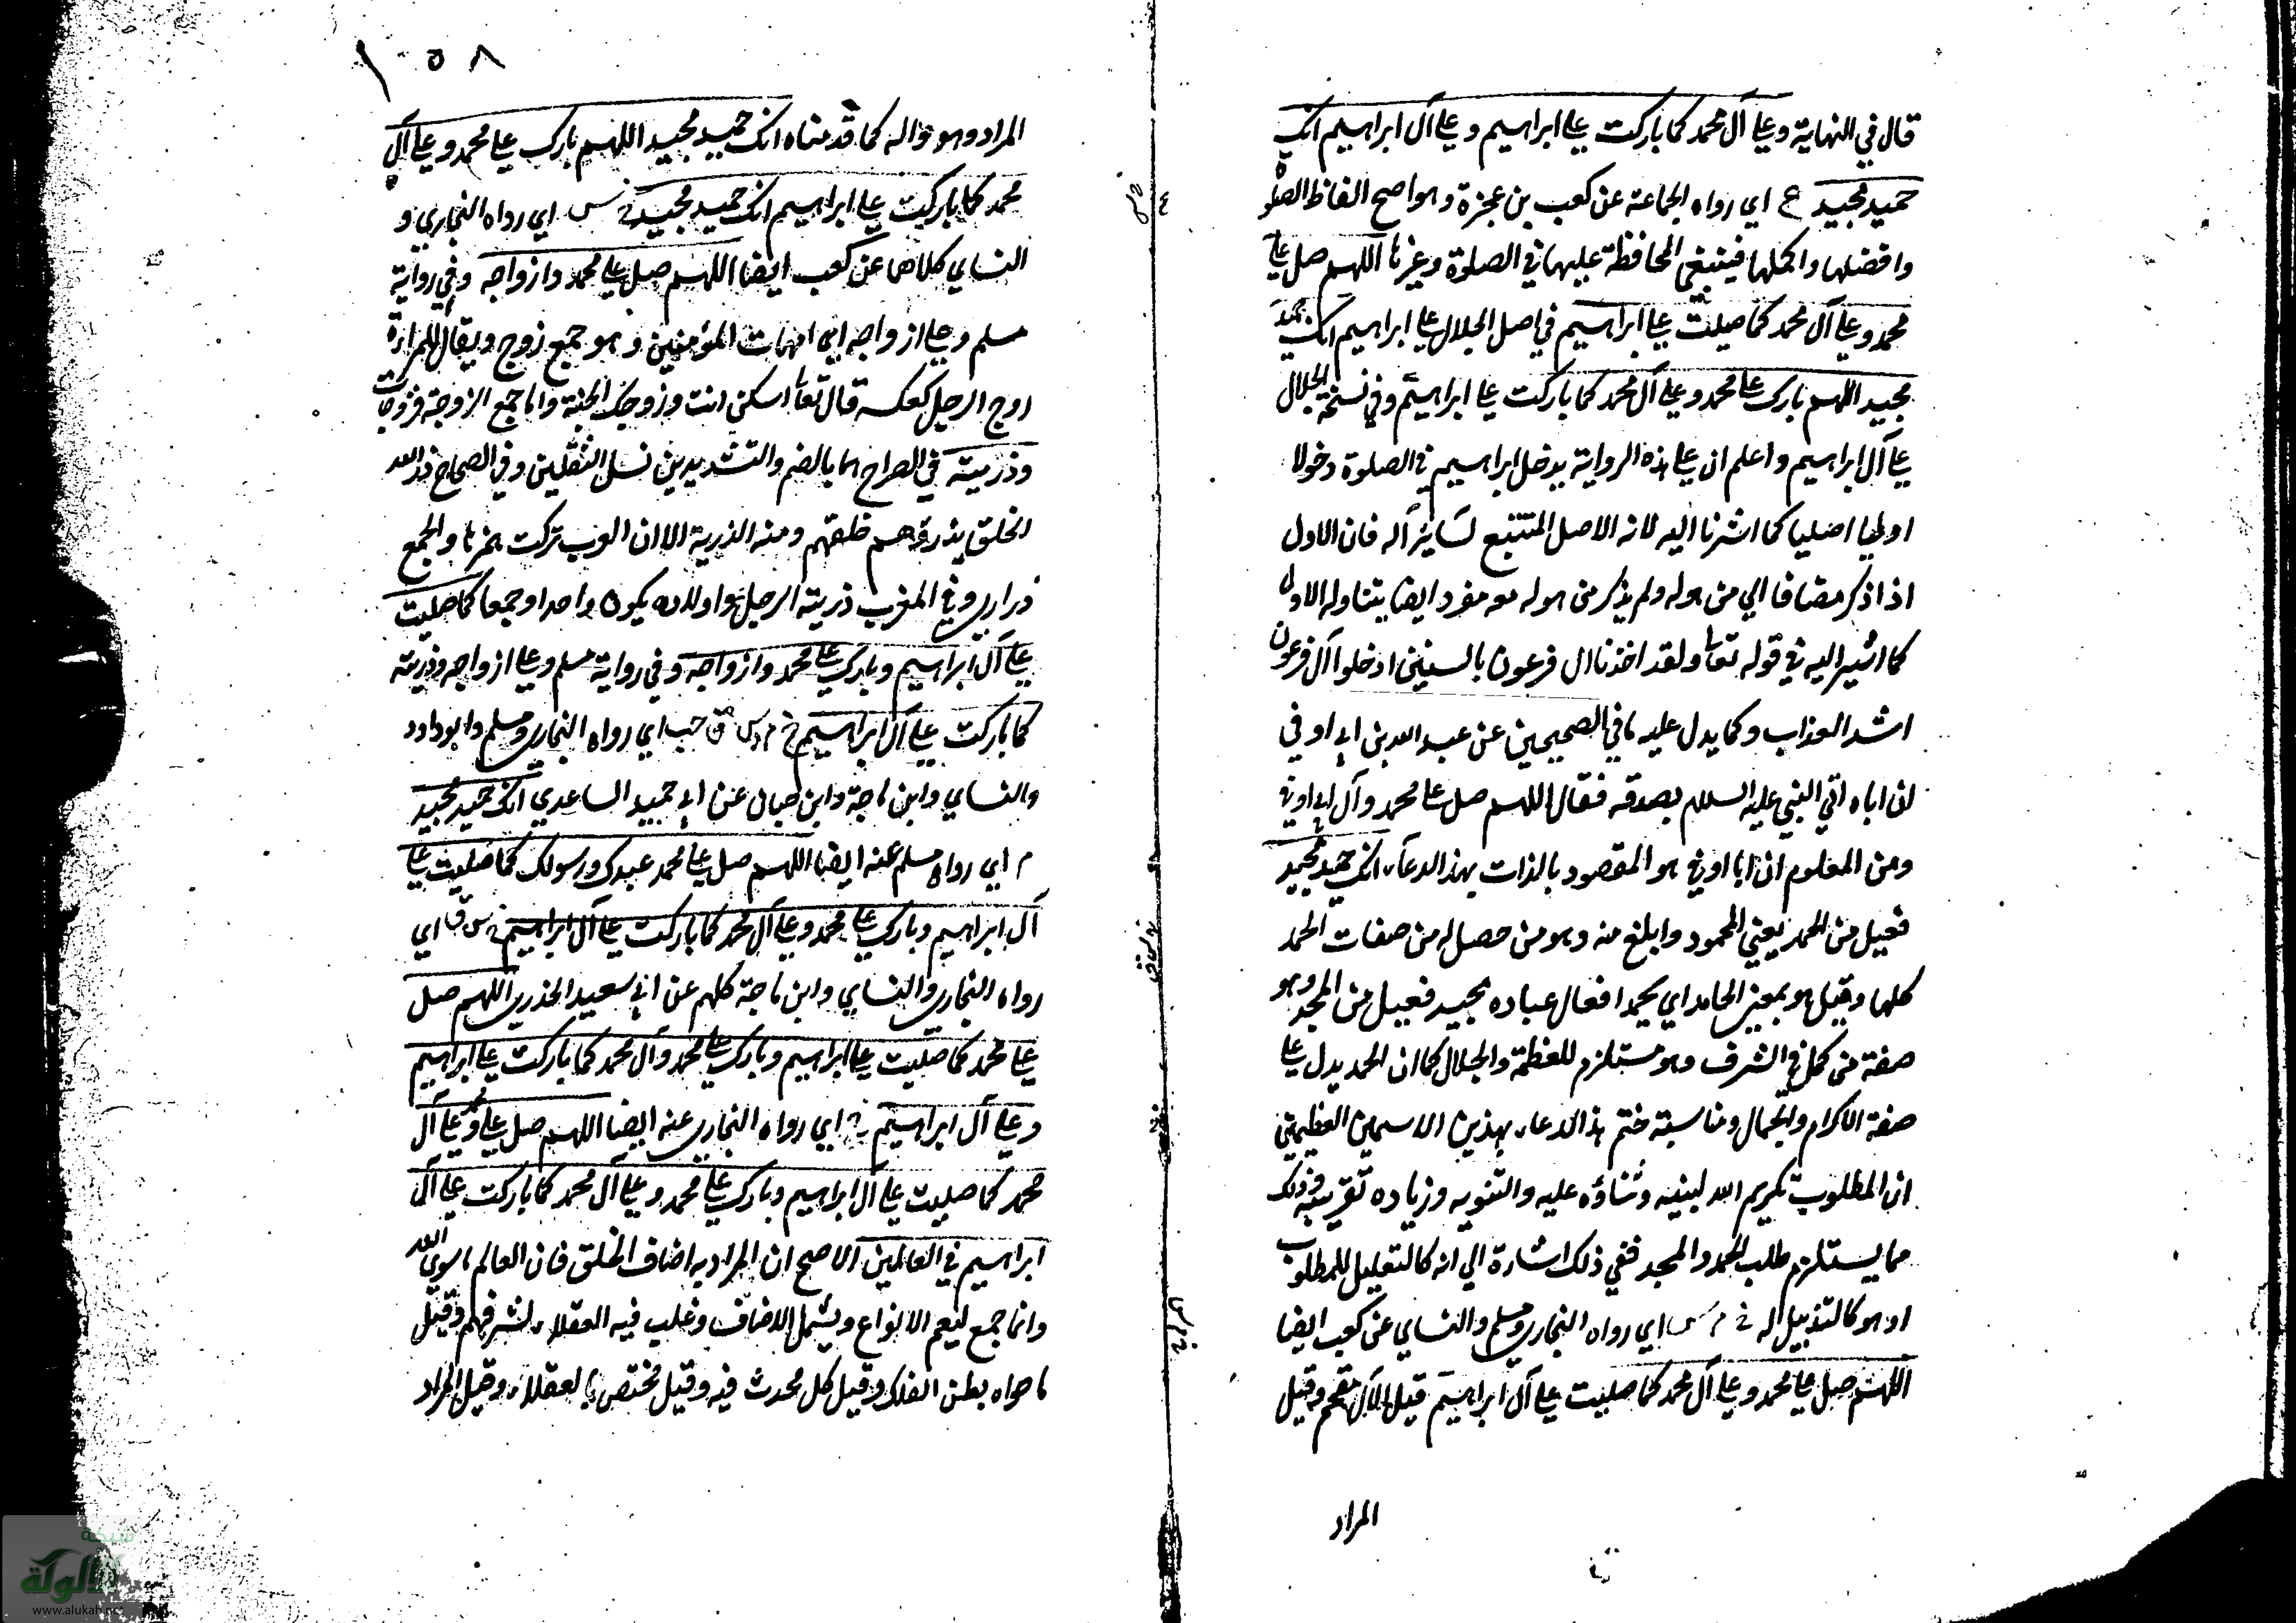 قال في النهاية وعلى آل محمد كما باركت على ابراهيم وعلى آل ابراهيم انك
حميد مجيد ع اي رواه الجماعة عن كعب بن عجرة وهو اصح الفاظ الصلوة
وافضلها واكملها فينبغي المحافظة عليها في الصلوة وغيرها اللهم صل على
محمد وعلى آل محمد كما صليت على ابراهيم في اصل الجلال على ابراهيم انك حميد
مجيد اللهم بارك على محمد وعلى آل محمد كما باركت على ابراهيم وفي نسخة الجلال
على آل ابراهيم واعلم ان على هذه الرواية يدخل ابراهيم في الصلوة دخولا
اوليا اصليا كما اشرنا اليه لانه الاصل المتتبع لسائر آله فان الاول
اذا ذكر مضافا الي من هو له ولم يذكر من هو له معه مفرد ايضا يتناوله الاول
كما اشير اليه في قوله تعا ولقد اخذنا ال فرعون بالسنين ادخلوا آل فرعون
اشد العذاب وكما يدل عليه ما في الصحيحين عن عبد الله بن ابي اوفي
ان اباه اتي النبي عليه السلام بصدقه فقال اللهم صل على محمد وآل ابي اوفي
ومن المعلوم ان ابا اوفي هو المقصود بالذات بهذا الدعاء انك حميد مجيد
فعيل من الحمد يعني المحمود وابلغ منه وهو من حصل له من صفات الحمد
كلها وقيل هو بمعنى الحامد اي يحمد افعال عباده مجيد فعيل من المجد وهو
صفة من كمل في الشرف وهو مستلزم للعظمة والجلال كما ان الحمد يدل على
صفة الاكرام والجمال ومناسبة ختم هذا الدعاء بهذين الاسمين العظيمين
ان المطلوب تكريم الله لنبيه وثناؤه عليه والتنويه وزياده تقريبه وذلك
مما يستلزم طلب الحمد والمجد ففي ذلك اشارة الي انه كالتعليل للمطلوب
او هو كالتذييل له خ م س اي رواه البخاري ومسلم والنساي عن كعب ايضا
اللهم صل على محمد وعلى آل محمد كما صليت على آل ابراهيم قيل الآل مقحم وقيل
المراد
١٠٥٨
المراد وهو وآله كما قدمناه انك حميد مجيد اللهم بارك على محمد وعلى آل
محمد كما باركت على ابراهيم انك حميد مجيد خ س اي رواه البخاري و
النساي كلاهما عن كعب ايضا اللهم صل على محمد وازواجه وفي رواية
مسلم وعلى ازواجه اي امهات المؤمنين وهو جمع زوج ويقال للمراة
زوج الرجل كعكسه قال تعا اسكن انت وزوجك الجنة واما جمع الزوجة فزوجات
وذريته في الصراح هما بالضم والتشديدين نسل الثقلين وفي الصحاح ذرأ الله
الخلق يذرؤهم خلقهم ومنه الذرية الا ان العرب تركت همزها والجمع
ذراري وفي المغرب ذرية الرجل اولاده ويكون واحدا وجمعا كما صليت
على آل ابراهيم وبارك على محمد وازواجه وفي رواية مسلم وعلى ازواجه وذريته
كما باركت على آل ابراهيم خ م د س ق حب اي رواه البخاري ومسلم وابو داود
والنساي وابن ماجة وابن حبان عن ابي حميد الساعدي انك حميد مجيد
م اي رواه مسلم عنه ايضا اللهم صل على محمد عبدك ورسولك كما صليت على
آل ابراهيم وبارك على محمد وعلى آل محمد كما باركت على آل ابراهيم خ س ق اي
رواه البخاري والنساي وابن ماجة كلهم عن ابي سعيد الخدري اللهم صل
على محمد كما صليت على ابراهيم وبارك على محمد وآل محمد كما باركت على ابراهيم
وعلى آل ابراهيم خ اي رواه البخاري عنه ايضا اللهم صل على محمد وعلى آل
محمد كما صليت على آل ابراهيم وبارك على محمد وعلى آل محمد كما باركت على آل
ابراهيم في العالمين الاصح ان المراد به اصناف الخلق فان العالم ما سوي الله
وانما جمع ليعم الانواع ويشمل الاصناف وغلب فيه العقلاء لشرفهم وقيل
ما حواه بطن الفلك وقيل كل محدث فيه وقيل مختص بالعقلاء وقيل المراد
شبكة
الألوكة
www.alukah.net